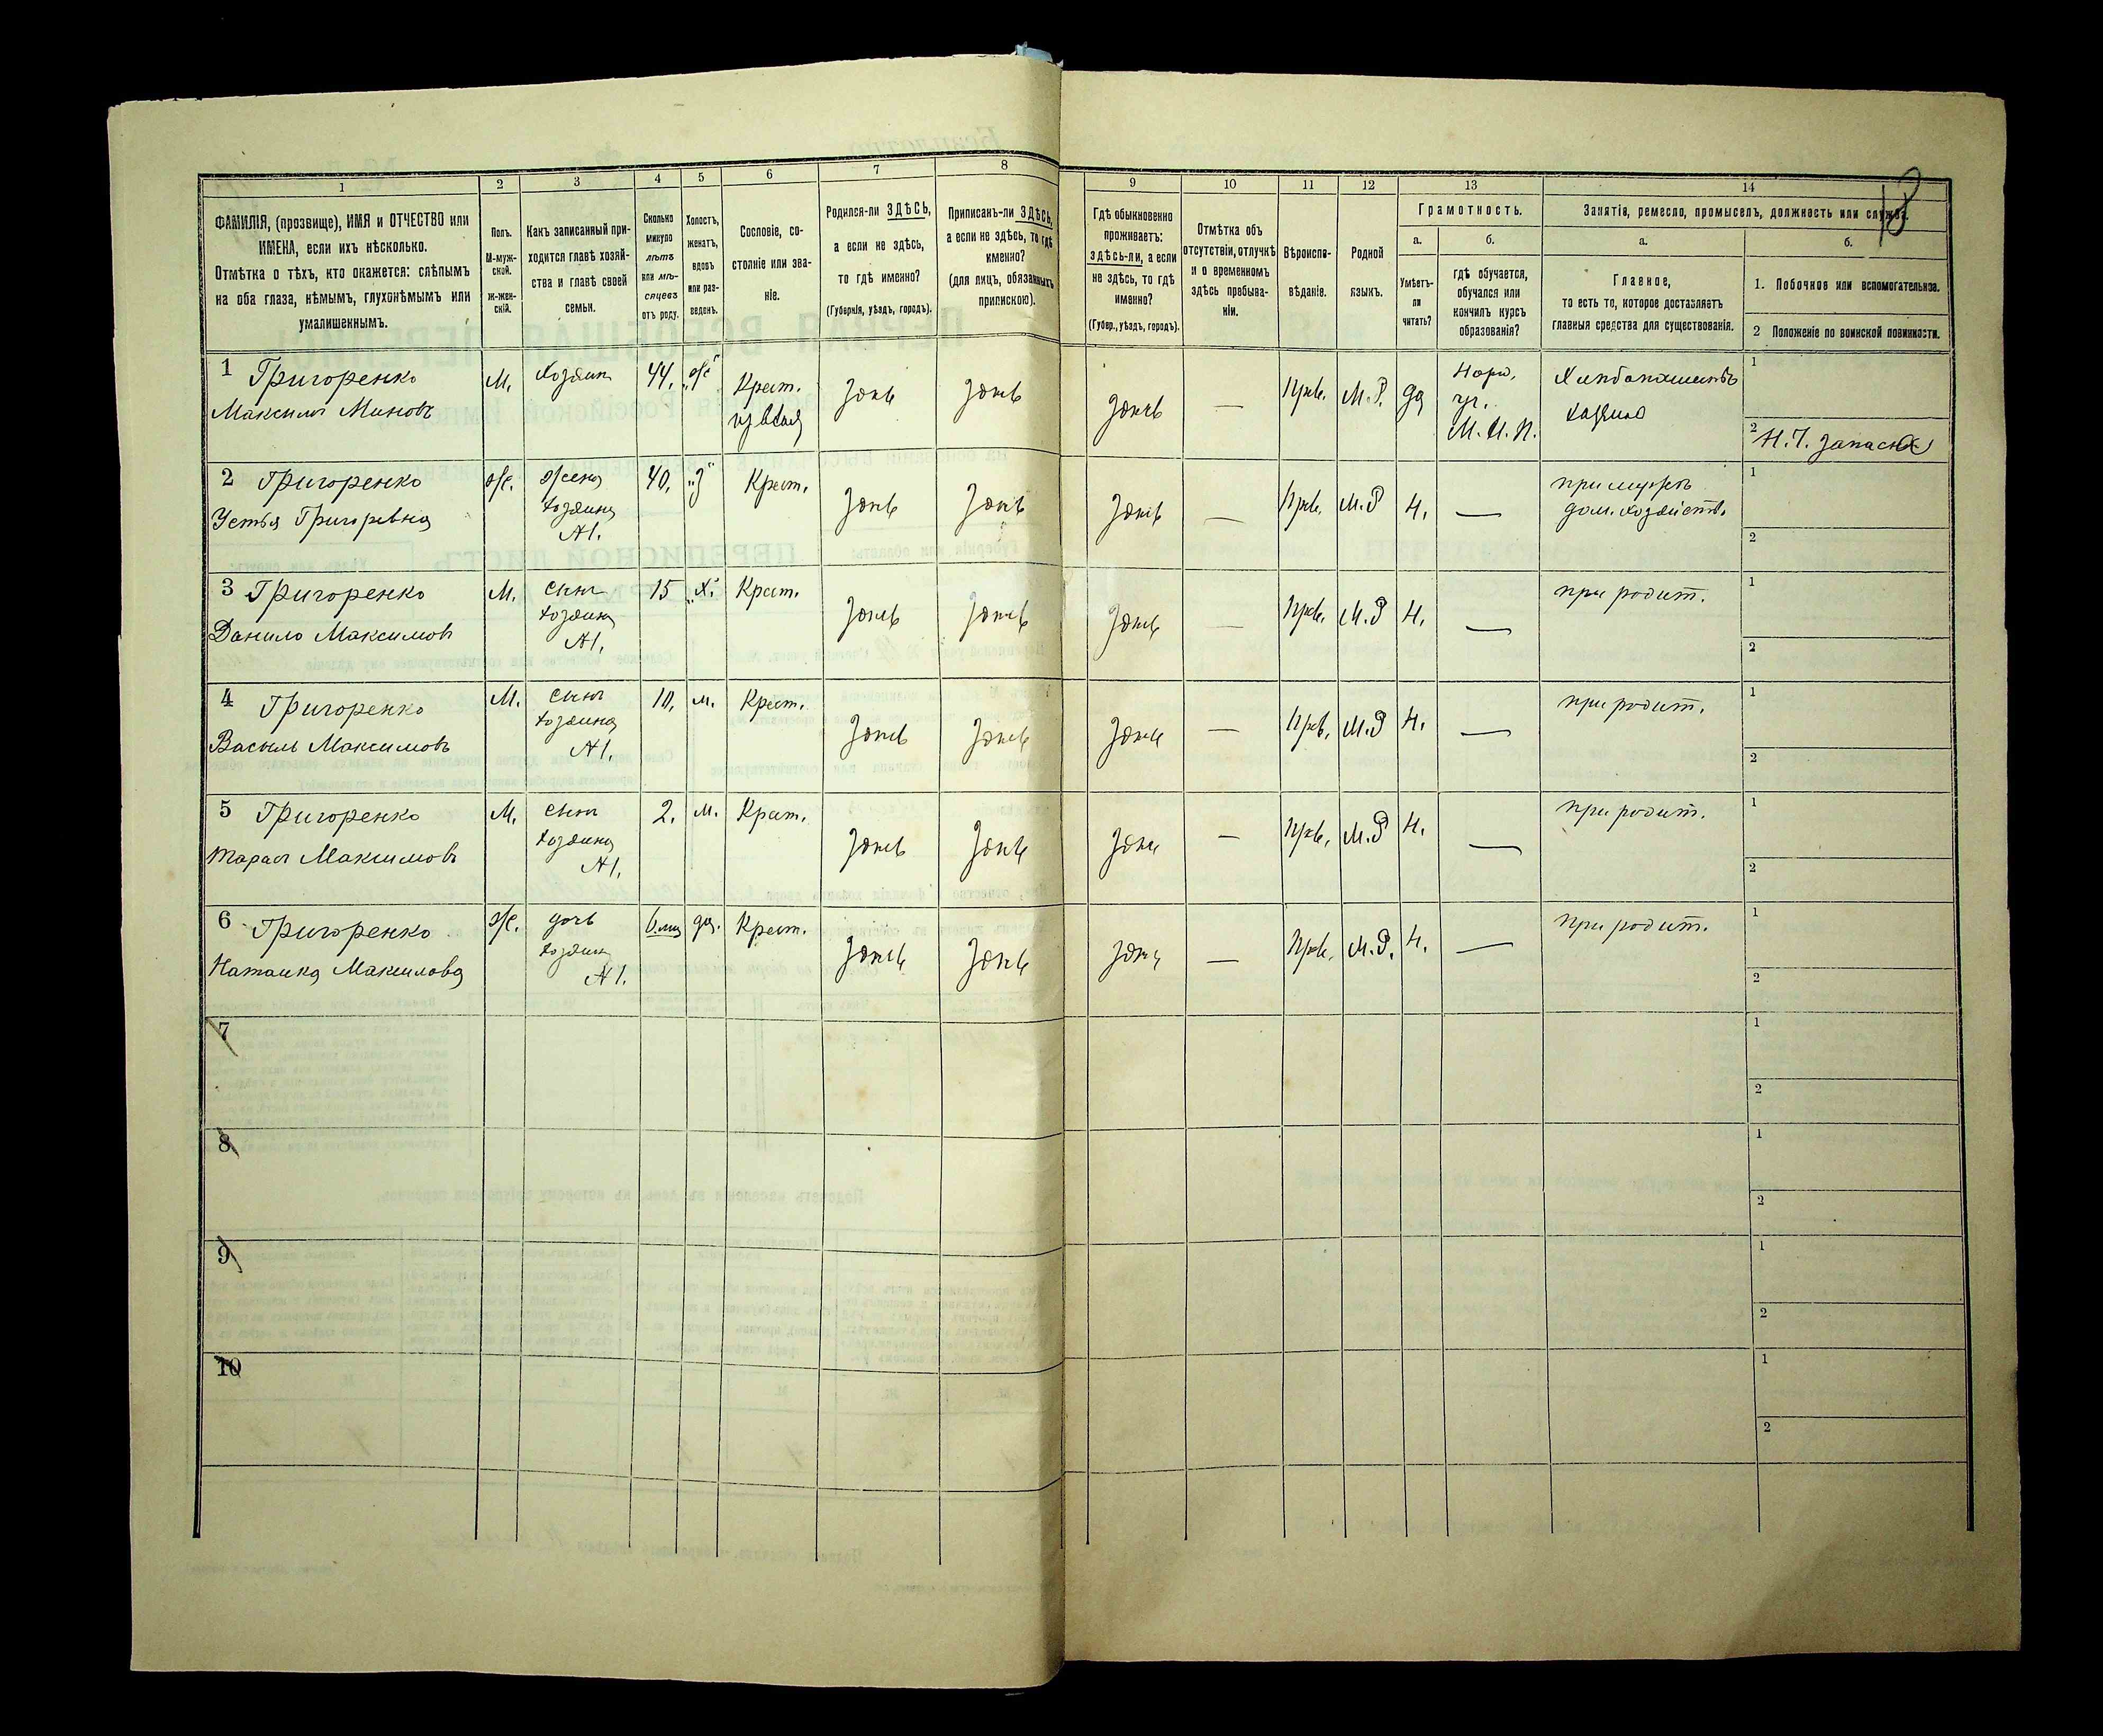 1 2 3 4 5 6 7 8 9 10 11 12 13 14
ФАМИЛІЯ, (прозвище), ИМЯ и ОТЧЕСТВО или
ИМЕНА, если ихъ нѣсколько.
Отмѣтка о тѣхъ, кто окажется: слѣпымъ
на оба глаза, нѣмымъ, глухонѣмымъ или
умалишеннымъ.
Полъ.
М-муж-
ской.
Ж-жен-
скій.
Какъ записанный при-
ходится главѣ хозяй-
ства и главѣ своей
семьи.
Сколько
минуло
лѣтъ
или мѣ-
сяцевъ
отъ роду.
Холостъ,
женатъ,
вдовъ
или раз-
веденъ.
Сословіе, со-
стояніе или зва-
ніе.
Родился-ли ЗДѢСЬ,
а если не здѣсь,
то гдѣ именно?
(Губернія, уѣздъ, городъ).
Приписанъ-ли ЗДѢСЬ,
а если не здѣсь, то гдѣ
именно?
(для лицъ, обязанныхъ
припискою).
Гдѣ обыкновенно
проживаетъ:
здѣсь-ли, а если
не здѣсь, то гдѣ
именно?
(Губер., уѣздъ, городъ).
Отмѣтка объ
отсутствіи, отлучкѣ
и о временномъ
здѣсь пребыва-
ніи.
Вѣроиспо-
вѣданіе.
Родной
языкъ.
Грамотность.
а.
Умѣетъ-
ли
читать?
б.
гдѣ обучается,
обучался или
кончилъ курсъ
образованія?
Занятія, ремесло, промыселъ, должность или служба.
а.
Главное,
то есть то, которое доставляетъ
главныя средства для существованія.
б.
1. Побочное или вспомогательное.
2 Положеніе по воинской повинности.
1 Григоренко
Максимъ Миновъ
М.
Хозяин
44.
Ж
Крест.
Здѣсь
Здѣсь
Здѣсь
—
Прав.
М.Р.
да
Нар.
уч.
М. Н. П.
Хлѣбопашецъ
хозяинъ
1
2 Н. Ч. запаса
2 Григоренко
Устья Григорьевна
Ж.
Жена
хозяина
№1.
40.
З
Крест.
Здѣсь
Здѣсь
Здѣсь
—
Прав.
М.Р
Н.
—
при мужѣ
дом. хозяйств.
1
2
3 Григоренко
Данило Максимовъ
М.
сынъ
хозяина
№1.
15
Х.
Крест.
Здѣсь
Здѣсь
Здѣсь
—
Прав.
М.Р
Н.
—
при родит.
1
2
4 Григоренко
Василь Максимовъ
М.
сынъ
хозяина
№1.
10.
м.
Крест.
Здѣсь
Здѣсь
Здѣсь
—
Прав.
М.Р
Н.
—
при родит.
1
2
5 Григоренко
Тарас Максимовъ
М.
сынъ
хозяина
№1.
2.
м.
Крест.
Здѣсь
Здѣсь
Здѣсь
—
Прав.
М.Р
Н.
—
при родит.
1
2
6 Григоренко
Наталка Максимова
Ж.
дочь
хозяина
№1.
6. мц
Крест.
Здѣсь
Здѣсь
Здѣсь
—
Прав.
М.Р.
Н.
—
при родит.
1
2
7
1
2
8
1
2
9
1
2
10
1
2